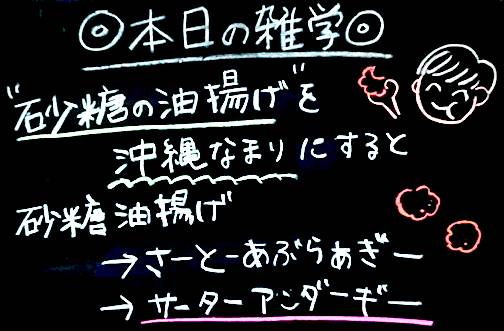 ◎本日の雑学◎
"砂糖の油揚げ"を
沖縄なまりにすると
砂糖油揚げ
→さーとーあぶらあぎー
→サーターアンダーギー